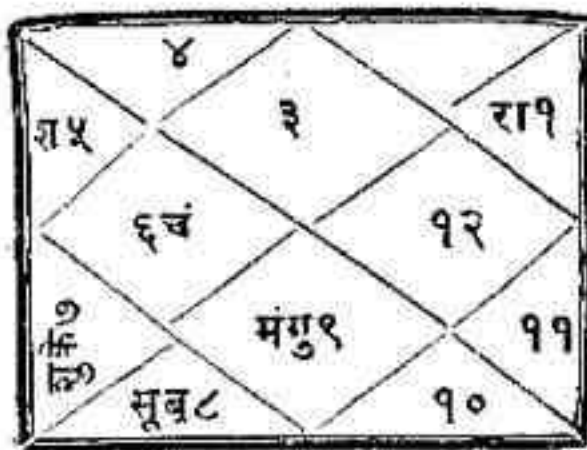 ४
३
रा१
श५
६चं
१२
शुके७
मंगु९
११
सूबु८
१०